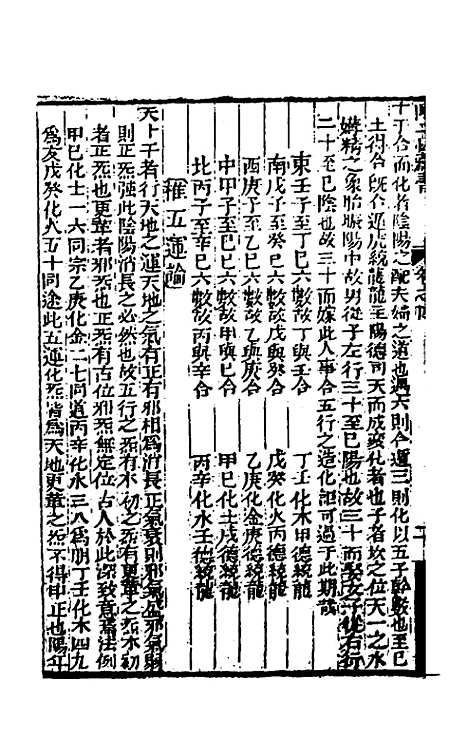 十干合而化者陰陽之配夫婦之道也遇六則合遇三則化以五子幹數也至巳
土得合旣合遁虎統龍龍至陽德司天而成變化者也子者坎之位天一之水
媾精之象胎娠陽中故男從子左行三十至巳陽也故三十而娶女子從右行
二十至巳陰也故二十而嫁此人事合五行之造化詎可過于此期哉
東壬子至丁巳六數故丁與壬合 丁壬化木甲德統龍
南戊子至癸巳六數故戊與癸合 戊癸化火丙德統龍
西庚子至乙巳六數故乙與庚合 乙庚化金庚德統龍
中甲子至己巳六數故甲與己合 甲己化土戊德統龍
北丙子至辛巳六數故丙與辛合 丙辛化水壬德統龍
稚五運論
天上干者行天地之運天地之氣有正有邪相爲消長正氣衰則邪氣盛邪氣弱
則正炁強此陰陽消長之必然也故五行之炁有本初之炁有更華之炁本初
者正炁也更華者邪炁也正炁有古位邪炁無定位古人於此深致意焉法例
甲己化土一六同宗乙庚化金二七同道丙辛化水三八爲朋丁壬化木四九
爲友戊癸化火五十同途此五運化炁皆爲天地更華之炁不得中正也陽年